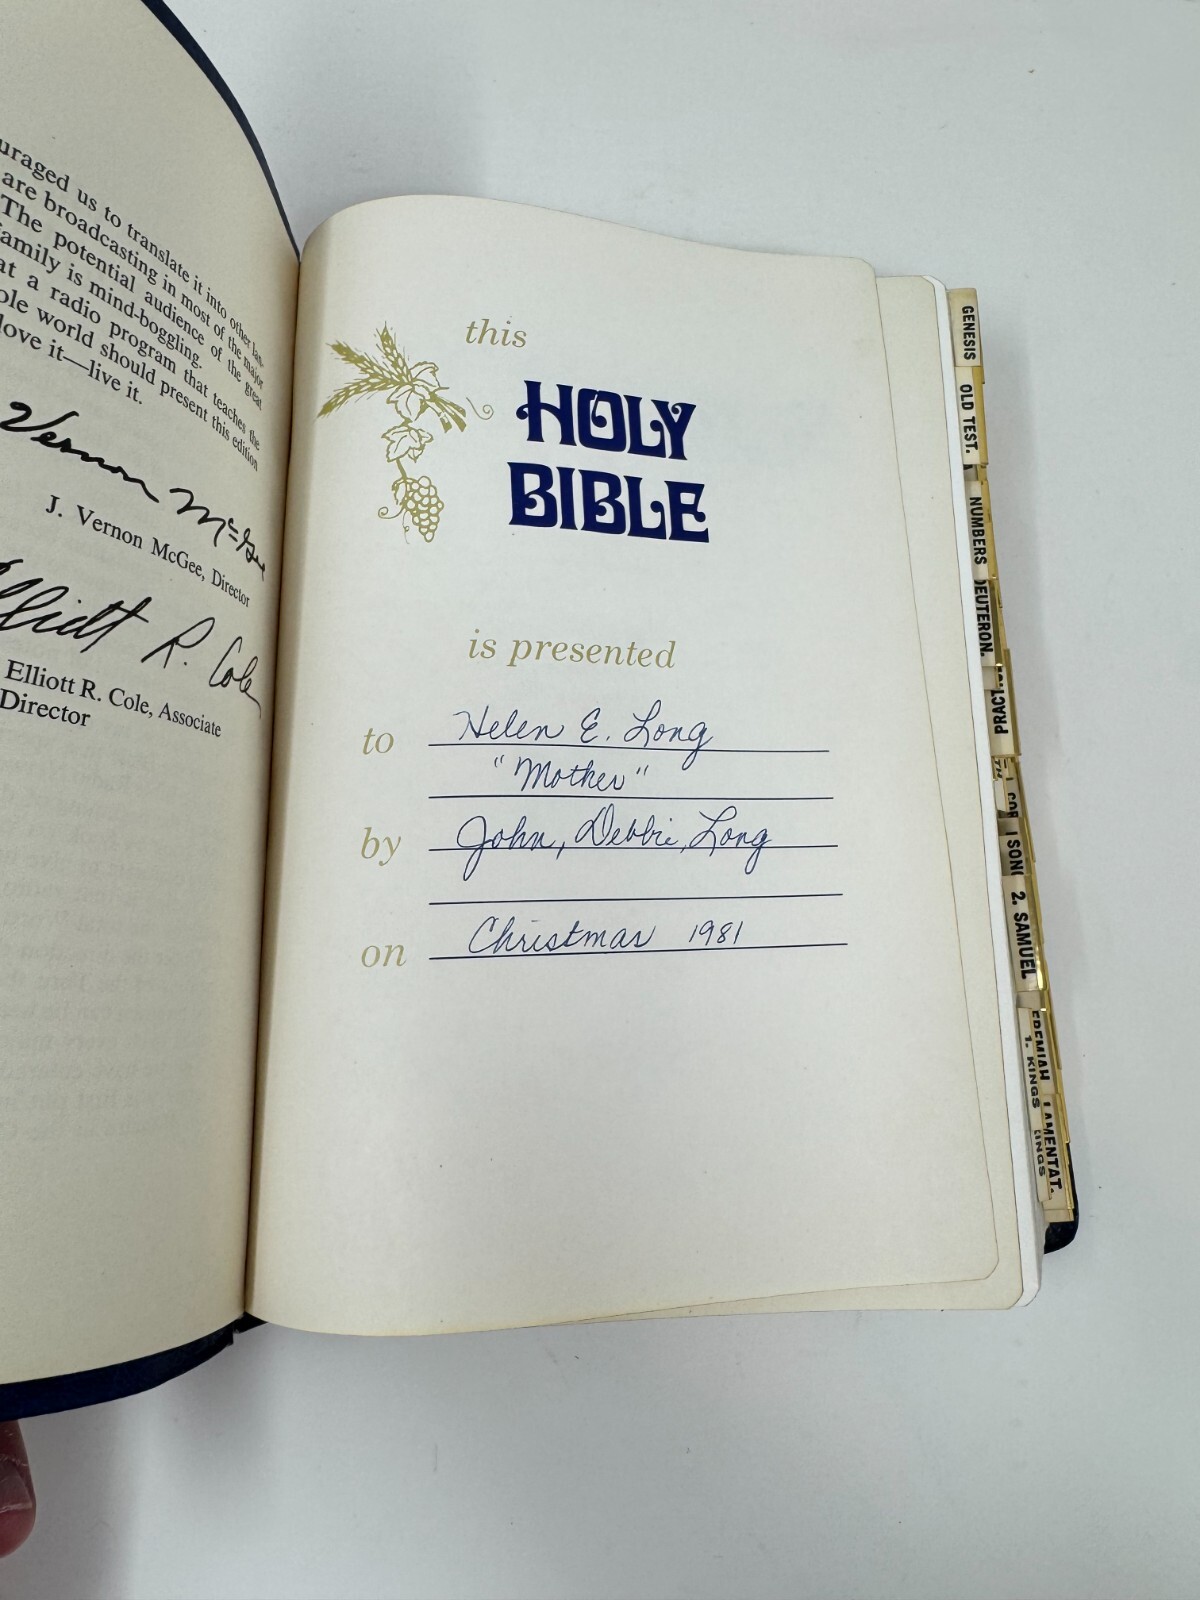 uraged us to translate it into other lan-
are broadcasting in most of the major
The potential audience of the great
family is mind-boggling.
at a radio program that teaches the
ole world should present this edition
love it—live it.
Vernon McGee
J. Vernon McGee, Director
Elliott R. Cole
Elliott R. Cole, Associate
Director
this
HOLY
BIBLE
is presented
to Helen E. Long
"Mother"
by John, Debbie, Long
on Christmas 1981
GENESIS
OLD TEST.
NUMBERS
DEUTERON.
PRACT
I SON
2. SAMUEL
EREMIAH
1. KINGS
LAMENTAT.
INGS